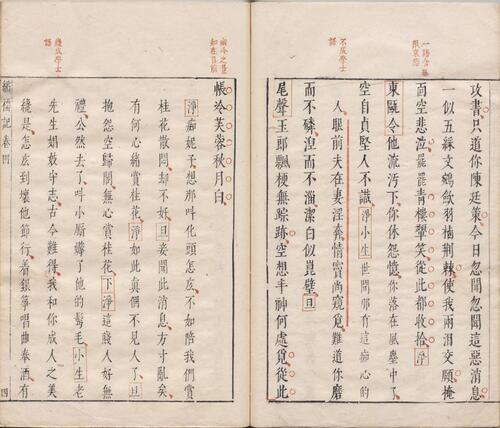 一語含無
限哀怨
攻書只道你陳廷策今日忽聞聞這惡消息
一似五綵文鵷歛羽棲荆棘使我兩泪交頤掩
面空悲泣罷罷青樓彈箏從此都收拾淨
東甌令他流汚下你休怨憶你落在風塵中了
空自貞堅人不識淨小生世間那有這痴心的
不成學士
語
人眼前夫在妻淫奔情實尚窺覓難道你磨
而不磷涅而不淄潔白似崑璧旦
尾聲玉郎飄梗無踪跡空想丰神何處覓從此
幽冷之景
知在目前
帳冷芙蓉秋月白
淨痴妮子想那叫化頭怎底不如陪我們賞
桂花散悶却不好旦妾聞此消息方寸亂矣
有何心緒賞桂花淨如此眞個不見人了旦
抱怨空歸閣無心賞桂花下淨這賤人好無
禮公然去了叫小厮了他的髩毛小生老
先生娼守志古今難得我和你成人之美
幾成學士
語
纔是怎去到壞他節行着銀箏唱曲奉酒有
繡襦記卷四
四